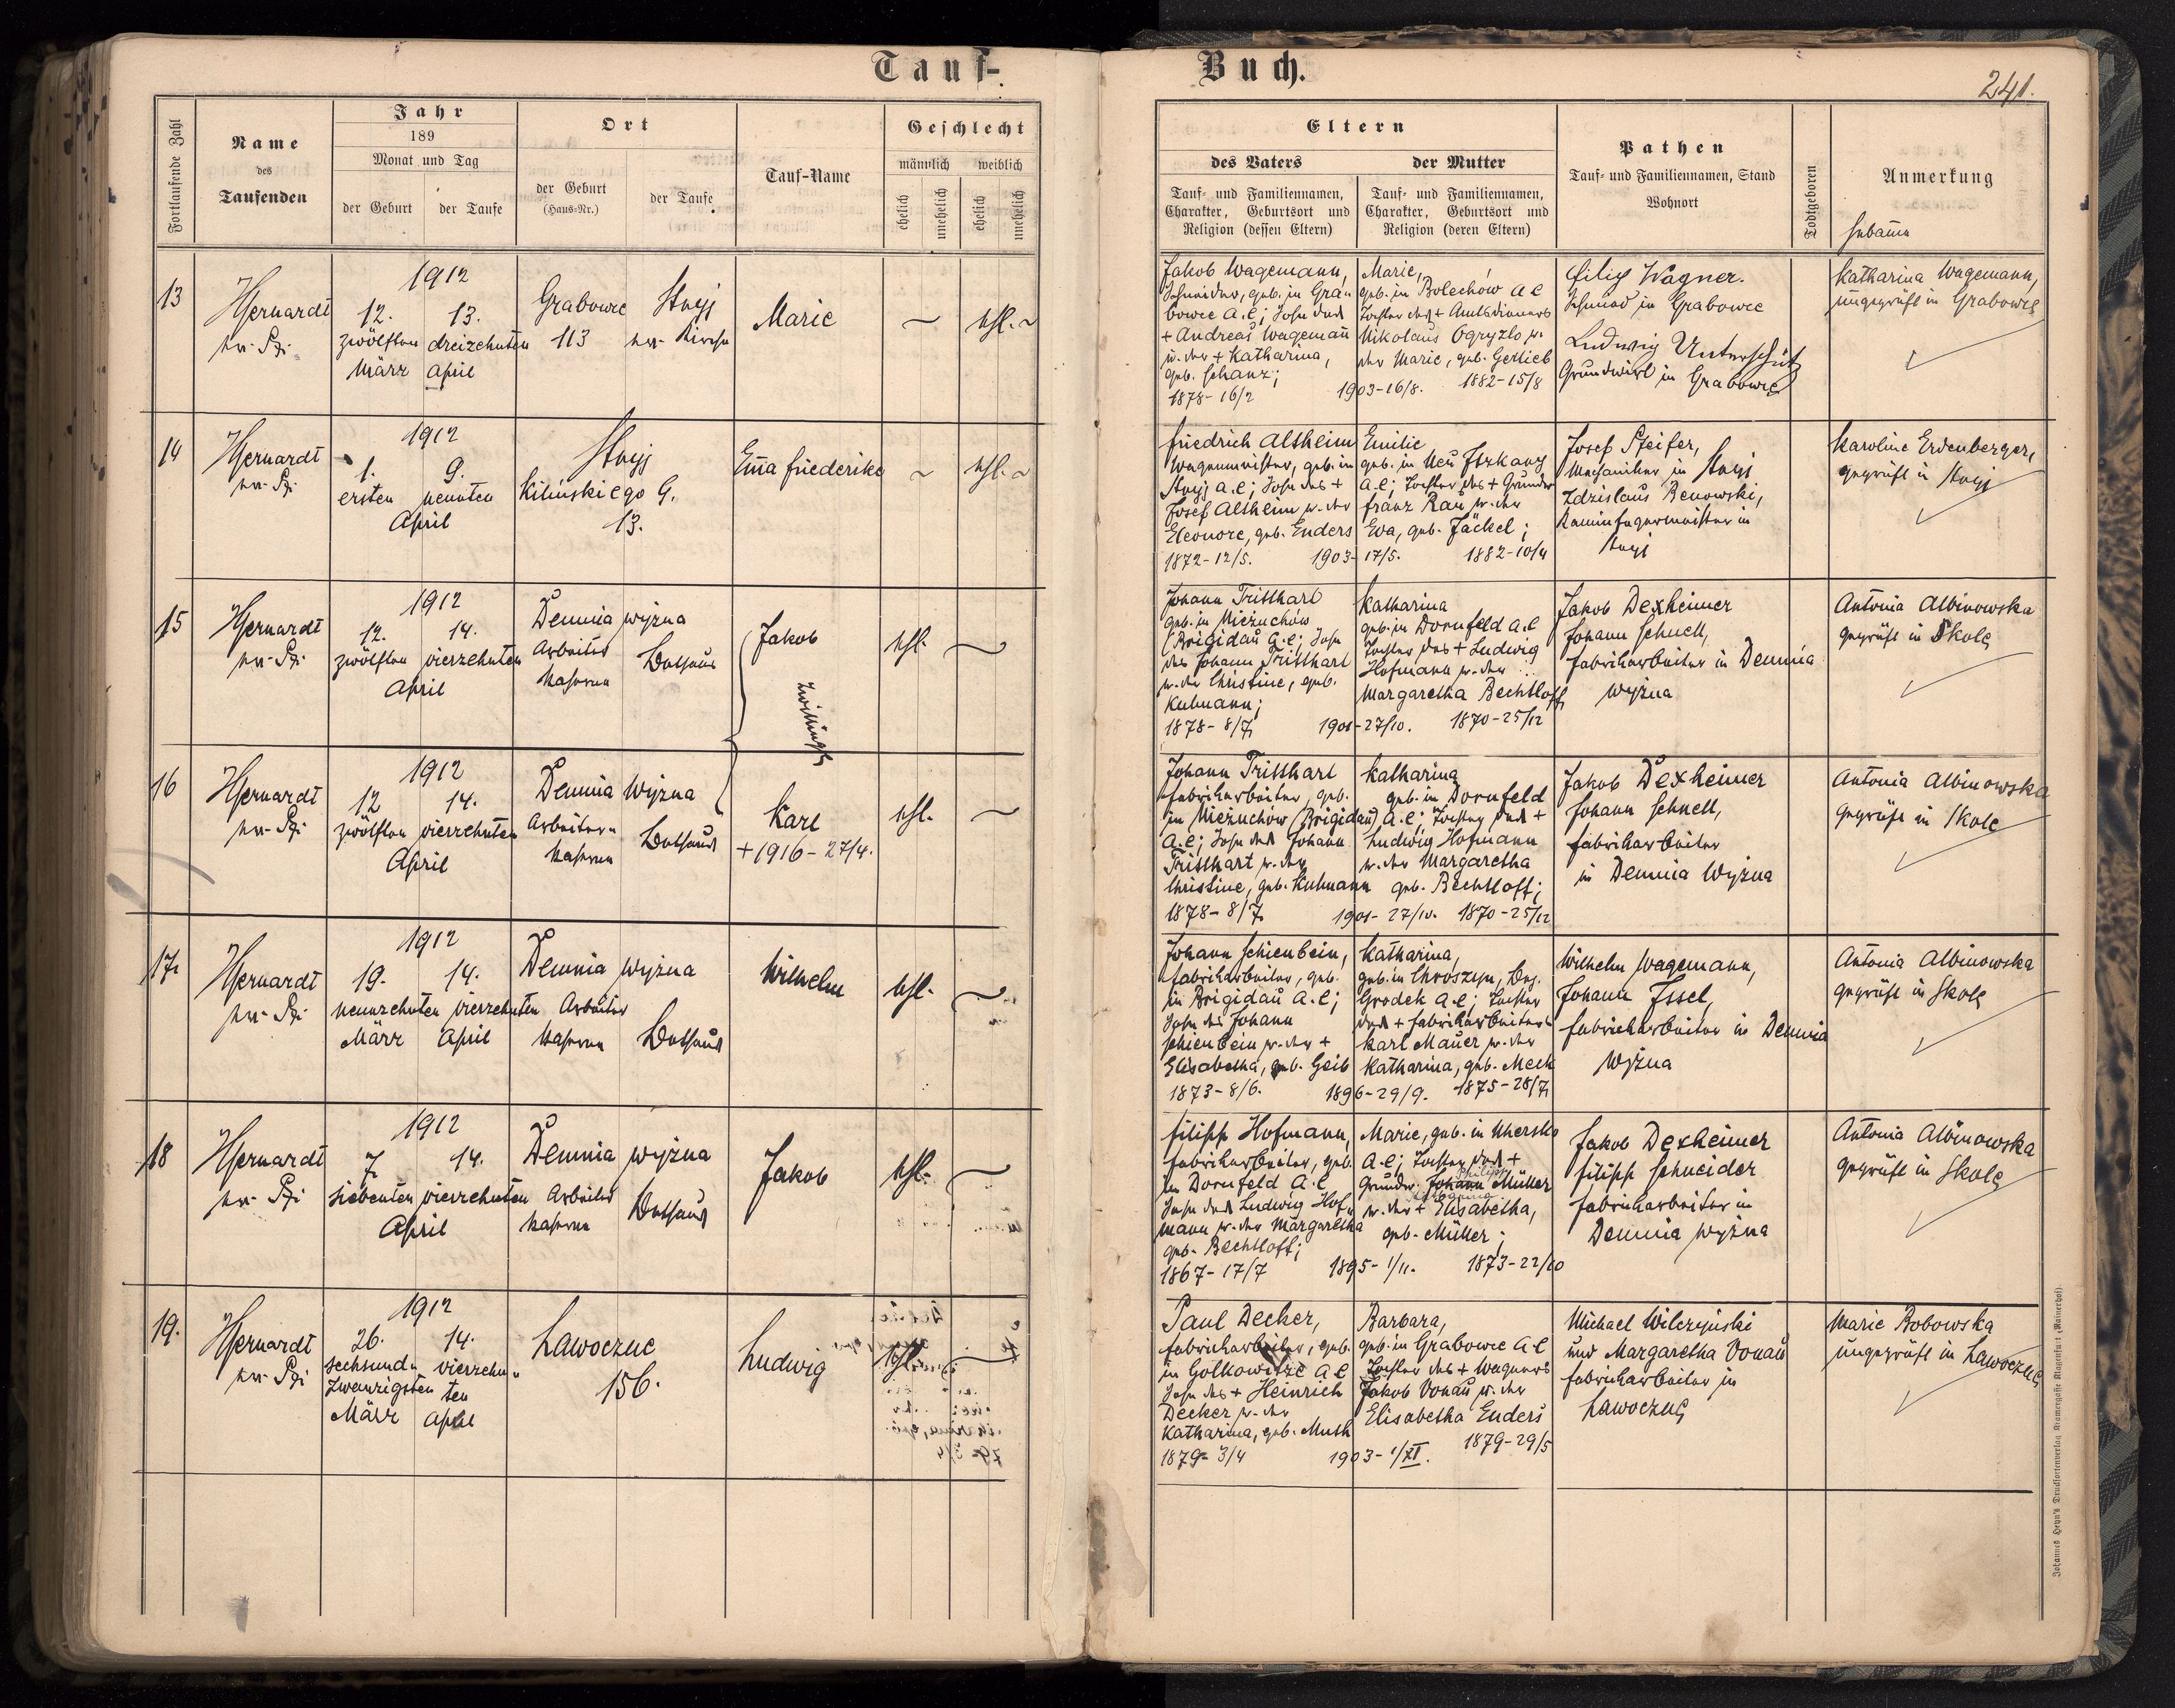 Tauf-
Buch.
241.
Fortlaufende Zahl
Name
des
Taufenden
Jahr
189
Monat und Tag
der Geburt
der Taufe
Ort
der Geburt
(Haus-Nr.)
der Taufe
Tauf-Name
Geschlecht
männlich
weiblich
ehelich
unehelich
ehelich
unehelich
Eltern
des Vaters
der Mutter
Tauf- und Familiennamen,
Charakter, Geburtsort und
Religion (dessen Eltern)
Tauf- und Familiennamen,
Charakter, Geburtsort und
Religion (deren Eltern)
Pathen
Tauf- und Familiennamen, Stand
Wohnort
Todtgeboren
Anmerkung
Hebamme
13
1912
12. 13.
zwölften dreizehnten
März April
Grabowce
113
Stryj
Kirche
Marie
ehl.
Jakob Wagemann,
Schneider, geb. in Gra-
bowce A.C; Sohn des
+ Andreas Wagemann
u. der + Katharina,
geb. Schanz;
1878-16/2
Marie,
geb. in Bolechów A C
Tochter des + Amtsdieners
Nikolaus Ogryzlo u.
der Marie, geb. Gerlieb
1903-16/8. 1882-15/8
Filip Wagner.
Schmied in Grabowce
Ludwig Unterschütz
Grundwirt in Grabowce
Katharina Wagemann,
ungeprüft in Grabowce
14
1912
1. 9.
ersten neunten
April
Stryj
Kilinskiego G.
13.
Emma Friederike
ehl.
Friedrich Altheim
Wagenmeister, geb. in
Stryj A.C; Sohn des +
Josef Altheim u. der
Eleonore, geb. Enders
1872-12/5.
Emilie
geb. in Neu
A.C; Tochter des + Grundw
Franz Rau u. der
Ewa, geb. Jäckel;
1903-17/5. 1882-10/4
Josef Pfeifer,
Mechaniker in Stryj
Zdzislaus Benowski,
Kaminfegermeister in
Stryj
Karoline Erdenberger,
geprüft in Stryj
15
1912
12. 14.
zwölften vierzehnten
April
Demnia wyżna
Arbeiter
Kaserne
Bethaus
Jakob
Zwillinge
ehl.
Johann Tritthart
geb. in Nieżuchów
(Brigidau A.C; Sohn
des Johann Tritthart
u. der Christine, geb.
Kuhmann;
1878-8/7
Katharina
geb. in Dornfeld A.C
Tochter des + Ludwig
Hofmann u. der
Margaretha Bechtloff
1901-27/10. 1870-25/12
Jakob Dexheimer
Johann Schnell,
Fabriksarbeiter in Demnia
wyżna
Antonia Albinowska
geprüft in Skole
16
1912
12 14.
zwölften vierzehnten
April
Demnia Wyżna
Arbeiter-
Kaserne
Bethaus
Karl
+1916-27/4.
ehl.
Johann Tritthart
Fabriksarbeiter, geb.
in Nieżuchów (Brigidau)
A.C; Sohn des Johann
Tritthart u. der
Christine, geb. Kuhmann
1878-8/7
Katharina
geb. in Dornfeld
A.C; Tochter des +
Ludwig Hofmann
u. der Margaretha
geb. Bechtloff;
1901-27/10. 1870-25/12
Jakob Dexheimer
Johann Schnell,
Fabriksarbeiter
in Demnia Wyżna
Antonia Albinowska
geprüft in Skole
17
1912
19. 14.
neunzehnten vierzehnten
März April
Demnia wyżna
Arbeiter
Kaserne
Bethaus
Wilhelm
ehl.
Johann Schienbein,
Fabriksarbeiter, geb.
in Brigidau A.C;
Sohn des Johann
Schienbein u. der +
Elisabetha, geb. Geib
1873-8/6.
Katharina,
Grodek A.C; Tochter
des + Fabriksarbeiters
Karl Mauer u. der
Katharina, geb. Meck
1896-29/9. 1875-28/7
Wilhelm Wagemann,
Johann Issel,
Fabriksarbeiter in Demnia
Wyżna
Antonia Albinowska
geprüft in Skole
18
1912
7 14.
siebenten vierzehnten
April
Demnia wyżna
Arbeiter
Kaserne
Bethaus
Jakob
ehl.
Filipp Hofmann,
Fabriksarbeiter, geb.
in Dornfeld A.C
Sohn des Ludwig Hof-
mann u. der Margaretha
geb. Bechtloff;
1867-17/7
Marie, geb. in Uhersko
A.C; Tochter des +
Philipp
Grundw. Johann Müller
u. der + Elisabetha,
geb. Müller;
1895-1/11. 1873-22/10
Jakob Dexheimer
Filipp Schneider
Fabriksarbeiter in
Demnia wyżna
Antonia Albinowska
geprüft in Skole
19.
1912
26. 14.
sechsund- vierzehn-
zwanzigsten ten
März April
Lawoczne
156.
Ludwig
ehl.
Paul Decker,
Fabriksarbeiter, geb.
in Golkowitze A C
Sohn des + Heinrich
Decker u. der
Katharina, geb. Muth
1879-3/4
Barbara,
geb. in Grabowce A C
Tochter des + Wagners
Jakob Donau u. der
Elisabetha Enders
1903-1/XI. 1879-29/5
Michael Wilczyński
und Margaretha Donau
Fabriksarbeiter in
Lawoczne
Marie Bobowska
ungeprüft in Lawoczne
Johannes Heyn's Drucksortenverlag Kramergasse Klagenfurt (Mainerhof).